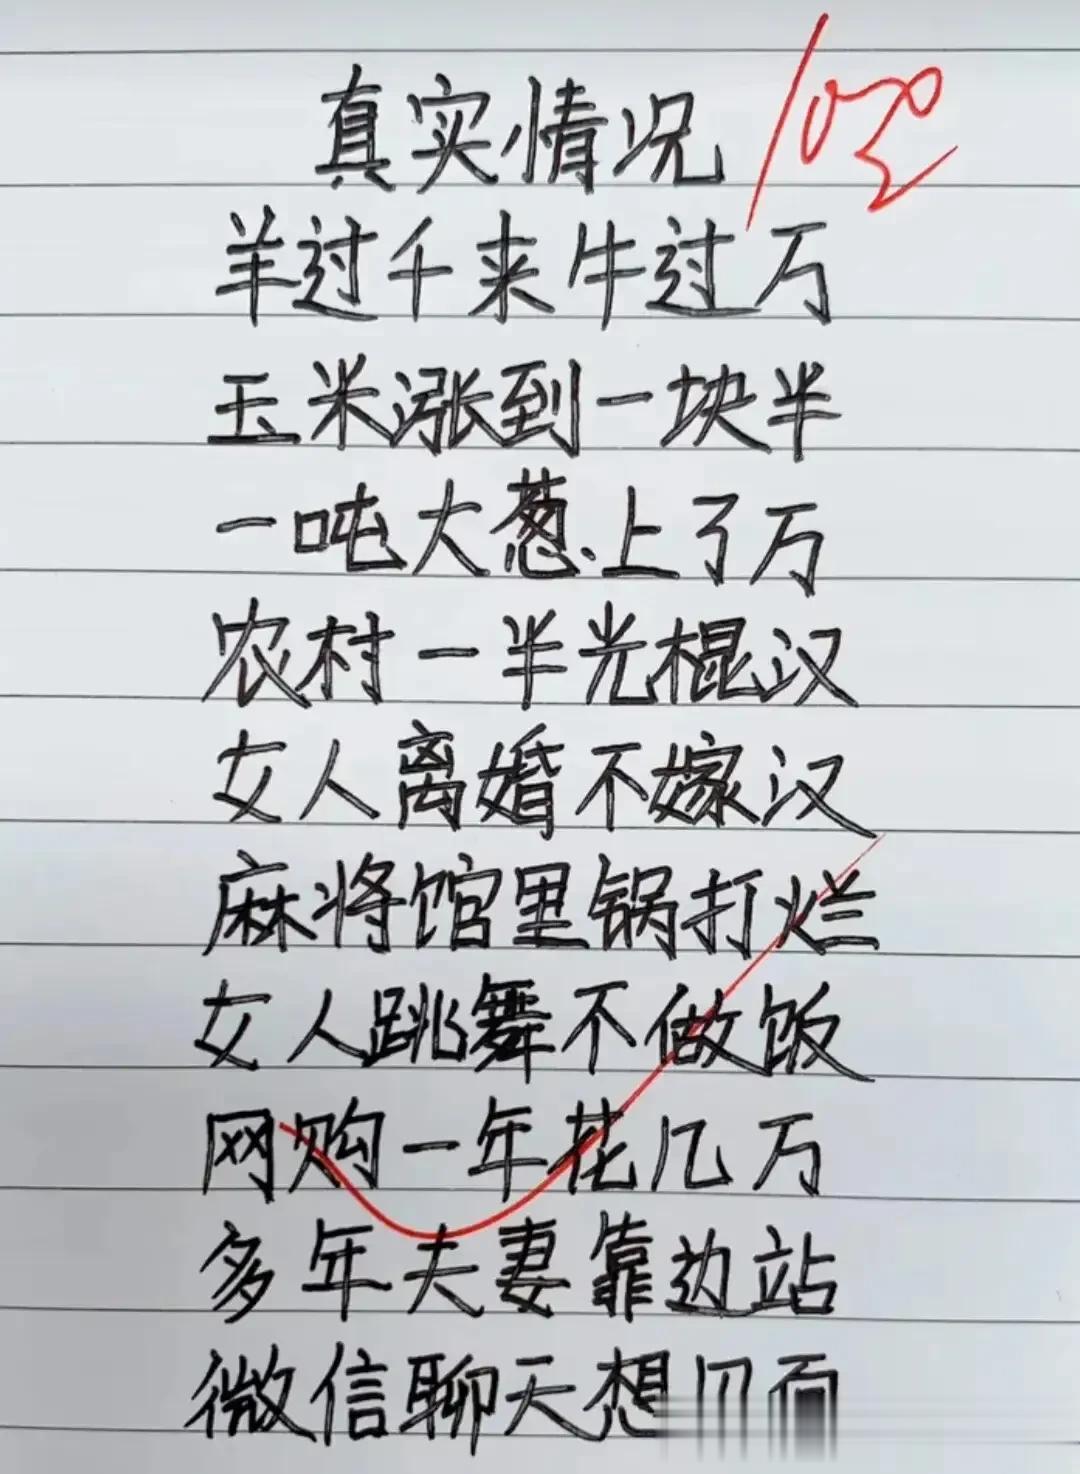 真实情况
羊过千来牛过万
玉米涨到一块半
一吨大葱上了万
农村一半光棍汉
女人离婚不嫁汉
麻将馆里锅打烂
女人跳舞不做饭
网购一年花几万
多年夫妻靠边站
微信聊天想见面